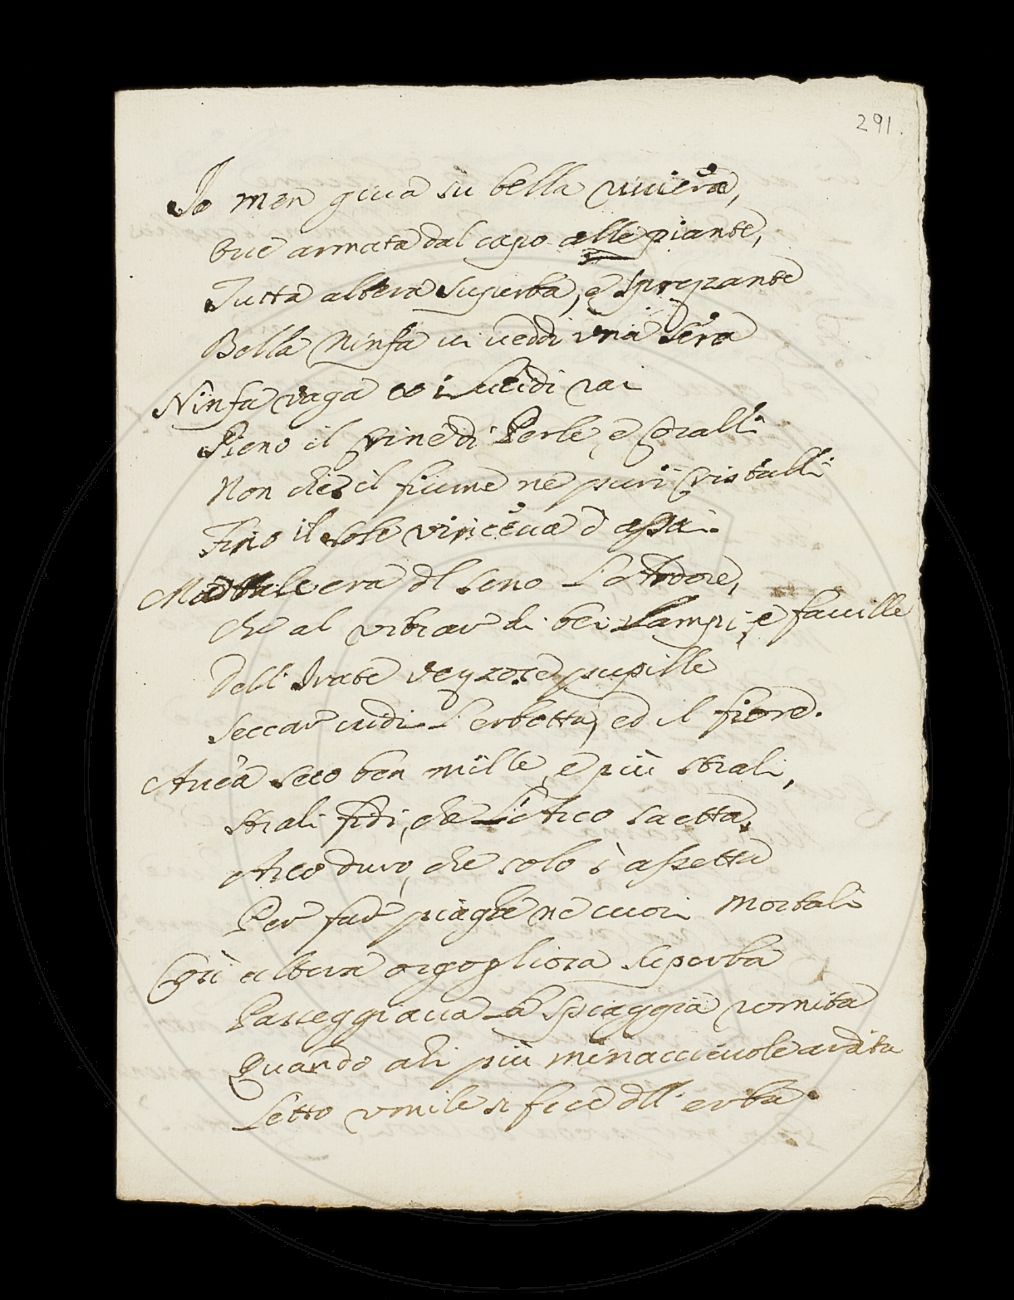 291.
Io men giua su bella riuiera,
Oue armata dal capo alle piante,
Tutta altera superba, e sprezzante
Bella Ninfa ui ueddi una sera
Ninfa vaga co i lucidi rai
Pieno il crine di Perle, e Coralli
Non che il fiume ne puri cristalli
Fino il sole vinceua d'assai.
Ma era del seno L'Ardore,
Che al vibrar di bei Lampi, e fauille
Dell'Irate vezzose pupille
Seccar uidi L'erbetta, ed il fiore.
Auea seco ben mille, e più strali,
Strali fidi, che L'Arco saetta,
Arco duro, che solo s'aspetta
Per far piaghe ne cuori Mortali
Così altera orgogliosa superba
Passeggiaua La spiaggia romita
Quando ahi più minacceuole ardita
Letto umile si fece dell'erba.